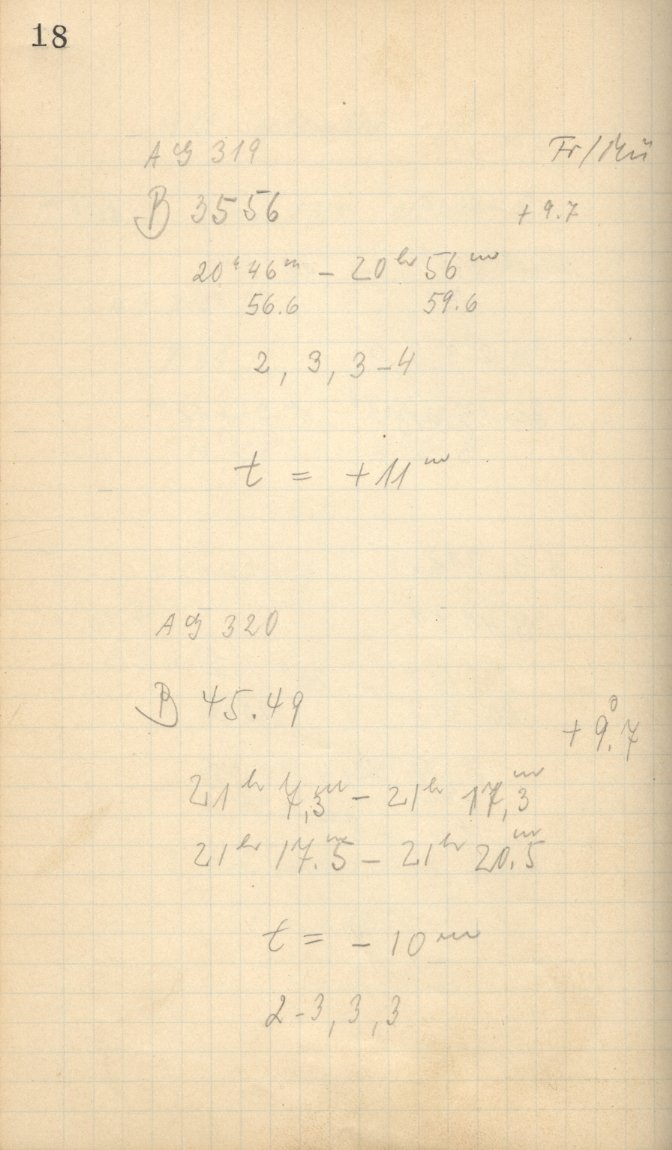 18
AG 319 Fr/Mü
B 3556 +9.7
20ʰ46ᵐ – 20ʰʳ56ᵐ
56.6 59.6
2, 3, 3–4
t = +11ᵐ
AG 320
B 45.49
+9°.7
21ʰʳ 7,3ᵐ – 21ʰʳ 17,3ᵐ
21ʰʳ 17.5ᵐ – 21ʰʳ 20.5ᵐ
t = –10ᵐ
2–3, 3, 3